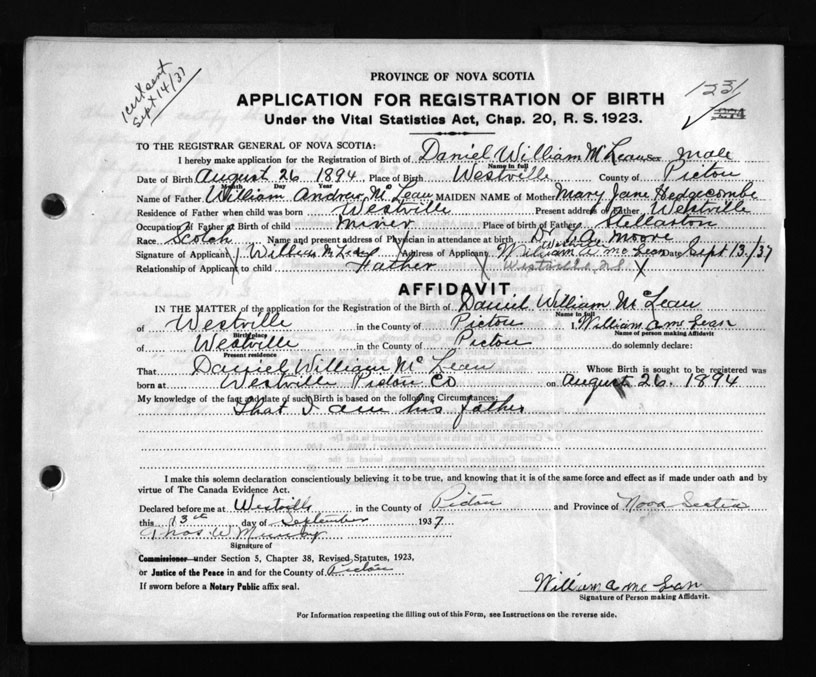 1 cert sent
Sept 14/37
PROVINCE OF NOVA SCOTIA
1231
APPLICATION FOR REGISTRATION OF BIRTH
274
Under the Vital Statistics Act, Chap. 20, R. S. 1923.
TO THE REGISTRAR GENERAL OF NOVA SCOTIA:
I hereby make application for the Registration of Birth of Daniel William McLean Sex male
Name in full
Date of Birth August 26 1894 Place of Birth Westville County of Pictou
Month Day Year
Name of Father William Andrew McLean MAIDEN NAME of Mother Mary Jane Hedgecombe
Residence of Father when child was born Westville Present address of Father Westville
Occupation of Father at Birth of child miner Place of birth of Father Stellarton
Race Scotch Name and present address of Physician in attendance at birth Dr Moore
Westville
Signature of Applicant William McLean Address of Applicant William A McLean Date Sept 13/37
Relationship of Applicant to child Father Westville N.S.
AFFIDAVIT
IN THE MATTER of the application for the Registration of the Birth of Daniel William McLean
Name in full
of Westville in the County of Pictou I, William A McLean
Birth place Name of person making Affidavit
of Westville in the County of Pictou do solemnly declare:
Present residence
That Daniel William McLean Whose Birth is sought to be registered was
born at Westville Pictou Co on August 26. 1894
My knowledge of the fact and date of such Birth is based on the following Circumstances:
That I am his father
I make this solemn declaration conscientiously believing it to be true, and knowing that it is of the same force and effect as if made under oath and by
virtue of The Canada Evidence Act.
Declared before me at Westville in the County of Pictou and Province of Nova Scotia
this 13th day of September 1937
Thos. W Murray
Signature of
Commissioner under Section 5, Chapter 38, Revised Statutes, 1923,
or Justice of the Peace in and for the County of Pictou
If sworn before a Notary Public affix seal.
William A McLean
Signature of Person making Affidavit.
For Information respecting the filling out of this Form, see Instructions on the reverse side.